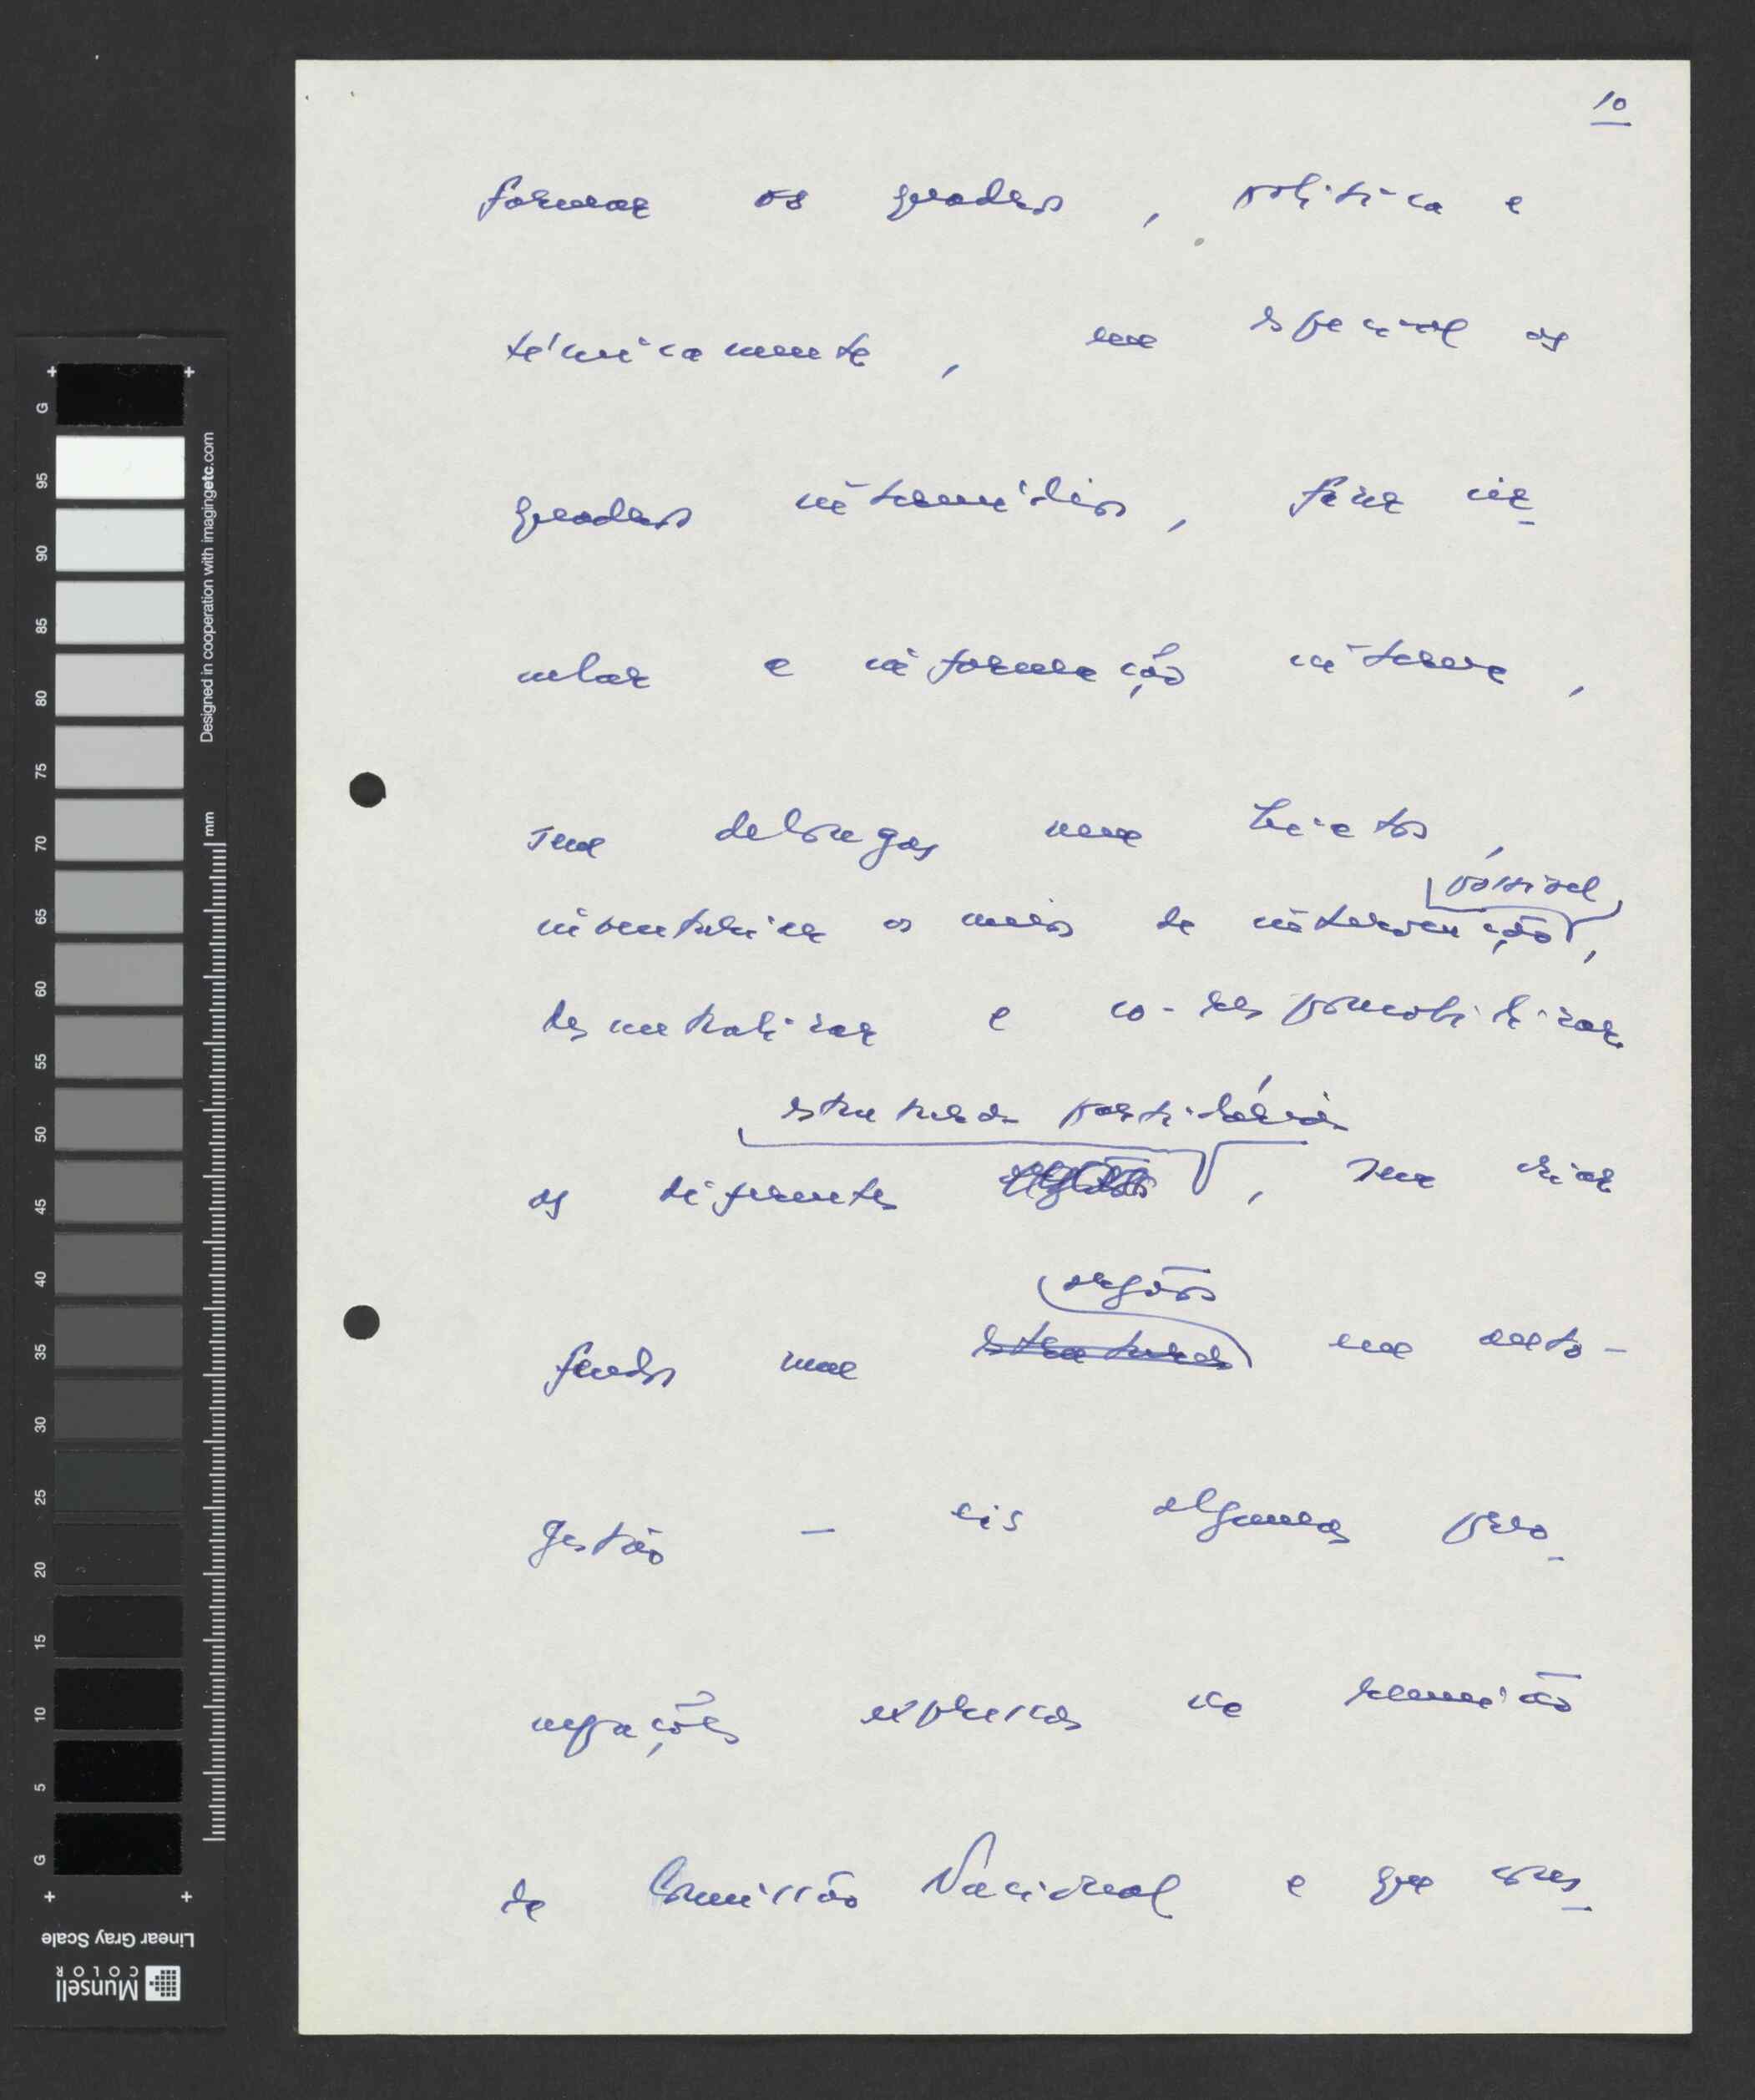 10
formar os quadros, política e
técnicamente, em especial os
quadros intermédios, fazer cir-
cular a informação interna,
sem delongas nem hiatos,
possível
inventariar os meios de intervenção,
descentralizar e co-responsabilizar
estruturas partidárias
as diferentes , sem criar
orgãos
feudos nem estruturas em auto-
gestão — eis algumas preo-
cupações expressas na reunião
da Comissão Nacional e que cons-
G
95
90
85
80
75
70
65
60
55
50
45
40
35
30
25
20
15
10
5
G
Designed in cooperation with imagingetc.com
mm
Linear Gray Scale
Munsell
COLOR